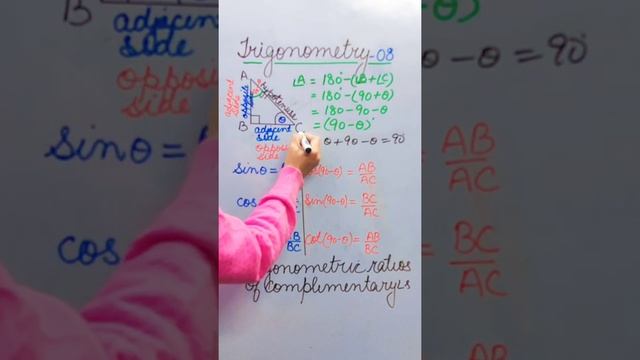 Trigonometry-08
A
B
C
θ
adjacent side
opposite
hypotenuse
adjacent side
opposite side
∠A = 180° - (∠B + ∠C)
= 180° - (90 + θ)
= 180 - 90 - θ
= (90 - θ)°
θ + 90 - θ = 90
sinθ =
cos(90-θ) = AB/AC
cos
sin(90-θ) = BC/AC
AB/BC
cot(90-θ) = AB/BC
gonometric ratios
of complimentary ∠s
B
adjacent
side
opposi
side
sinθ =
cos
- θ = 90
AB/AC
BC/AC